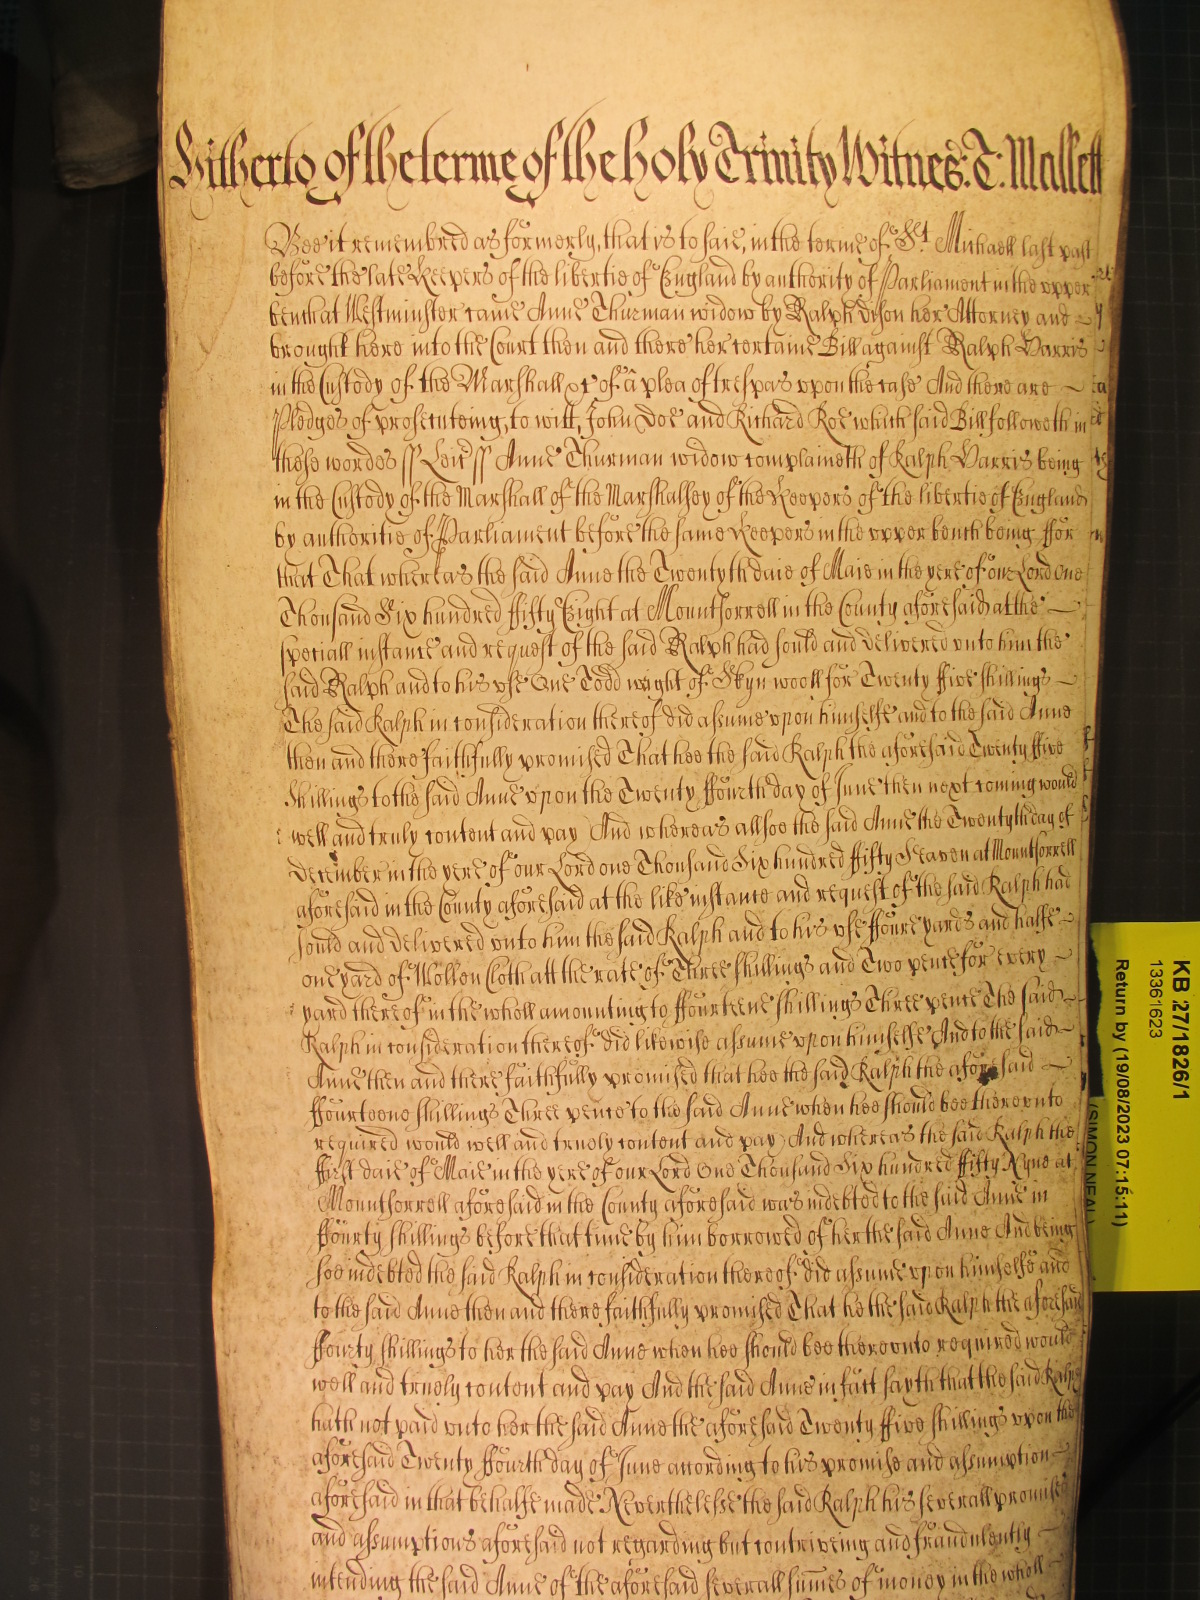 Hitherto of the terme of the holy Trinity Witnes: T: Mallett
Bee it remembred as formerly, that is to saie, in the terme of St Michaell last past
before the late Keepers of the libertie of England by authority of Parliament in the upper
bench at Westminster came Anne Thurman widow by Ralph Dison her Attorney and
brought here into the Court then and there her certaine Bill against Ralph Harris
in the Custody of the Marshall &c of a plea of trespas vpon the case And there are
Pledges of prosecuteing, to witt, John Doe and Richard Roe which said Bill followeth in
these wordes ss Leic ss Anne Thurman widow complaineth of Ralph Harris being
in the Custody of the Marshall of the Marshalsey of the Keepers of the libertie of England
by authoritie of Parliament before the same Keepers in the vpper bench being ffor
that That whereas the said Anne the Twentyth daie of Maie in the yere of our Lord One
Thousand Six hundred ffifty Eight at Mountsorrell in the County aforesaid at the
speciall instance and request of the said Ralph had sould and delivered vnto him the
said Ralph and to his vse One Todd weight of Skyn wooll for Twenty ffive shillings
The said Ralph in consideration thereof did assume vpon himselfe and to the said Anne
then and there faithfully promised That hee the said Ralph the aforesaid Twenty ffive
shillings to the said Anne vpon the Twenty ffourth day of June then next coming would
well and truly content and pay And whereas allsoe the said Anne the Twentyth day of
December in the yere of our Lord one Thousand Six hundred ffifty Seaven at Mountsorrell
aforesaid in the County aforesaid at the like instance and request of the said Ralph had
sould and delivered vnto him the said Ralph and to his vse ffoure yards and halfe
one yard of Wollen Cloth att the rate of Three shillings and Two pence for every
yard thereof in the wholl amounting to ffourteene shillings Three pence The said
Ralph in consideration thereof did likewise assume vpon himselfe And to the said
Anne then and there faithfully promised that hee the said Ralph the aforesaid
ffourteene shillings Three pence to the said Anne when hee should bee therevnto
required would well and truely content and pay And whereas the said Ralph the
ffirst daie of Maie in the yere of our Lord One Thousand Six hundred ffifty Nyne at
Mountsorrell aforesaid in the County aforesaid was indebted to the said Anne in
ffourty shillings before that time by him borrowed of her the said Anne And being
soe indebted the said Ralph in consideration thereof did assume vpon himselfe and
to the said Anne then and there faithfully promised That he the said Ralph the aforesaid
ffourty shillings to her the said Anne when hee should bee therevnto required would
well and truely content and pay And the said Anne in fact sayth that the said Ralph
hath not paid vnto her the said Anne the aforesaid Twenty ffive shillings vpon the
aforesaid Twenty ffourth day of June according to his promise and assumption
aforesaid in that behalfe made Neverthelesse the said Ralph his severall promises
and assumptions aforesaid not regarding but contriveing and fraudulently
intending the said Anne of the aforesaid severall summes of money in the wholl
KB 27/1826/1
13361623
Return by (19/08/2023 07:15:11)
(SIMON NEAL)